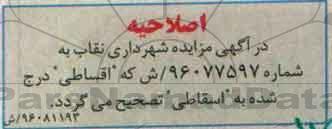 اصلاحیه
در آگهی مزایده شهرداری نقاب به
شماره ۹۶۰۷۷۵۹۷/ش که "اقساطی" درج
شده به "اسقاطی" تصحیح می گردد.
۹۶۰۸۱۱۹۳/ش